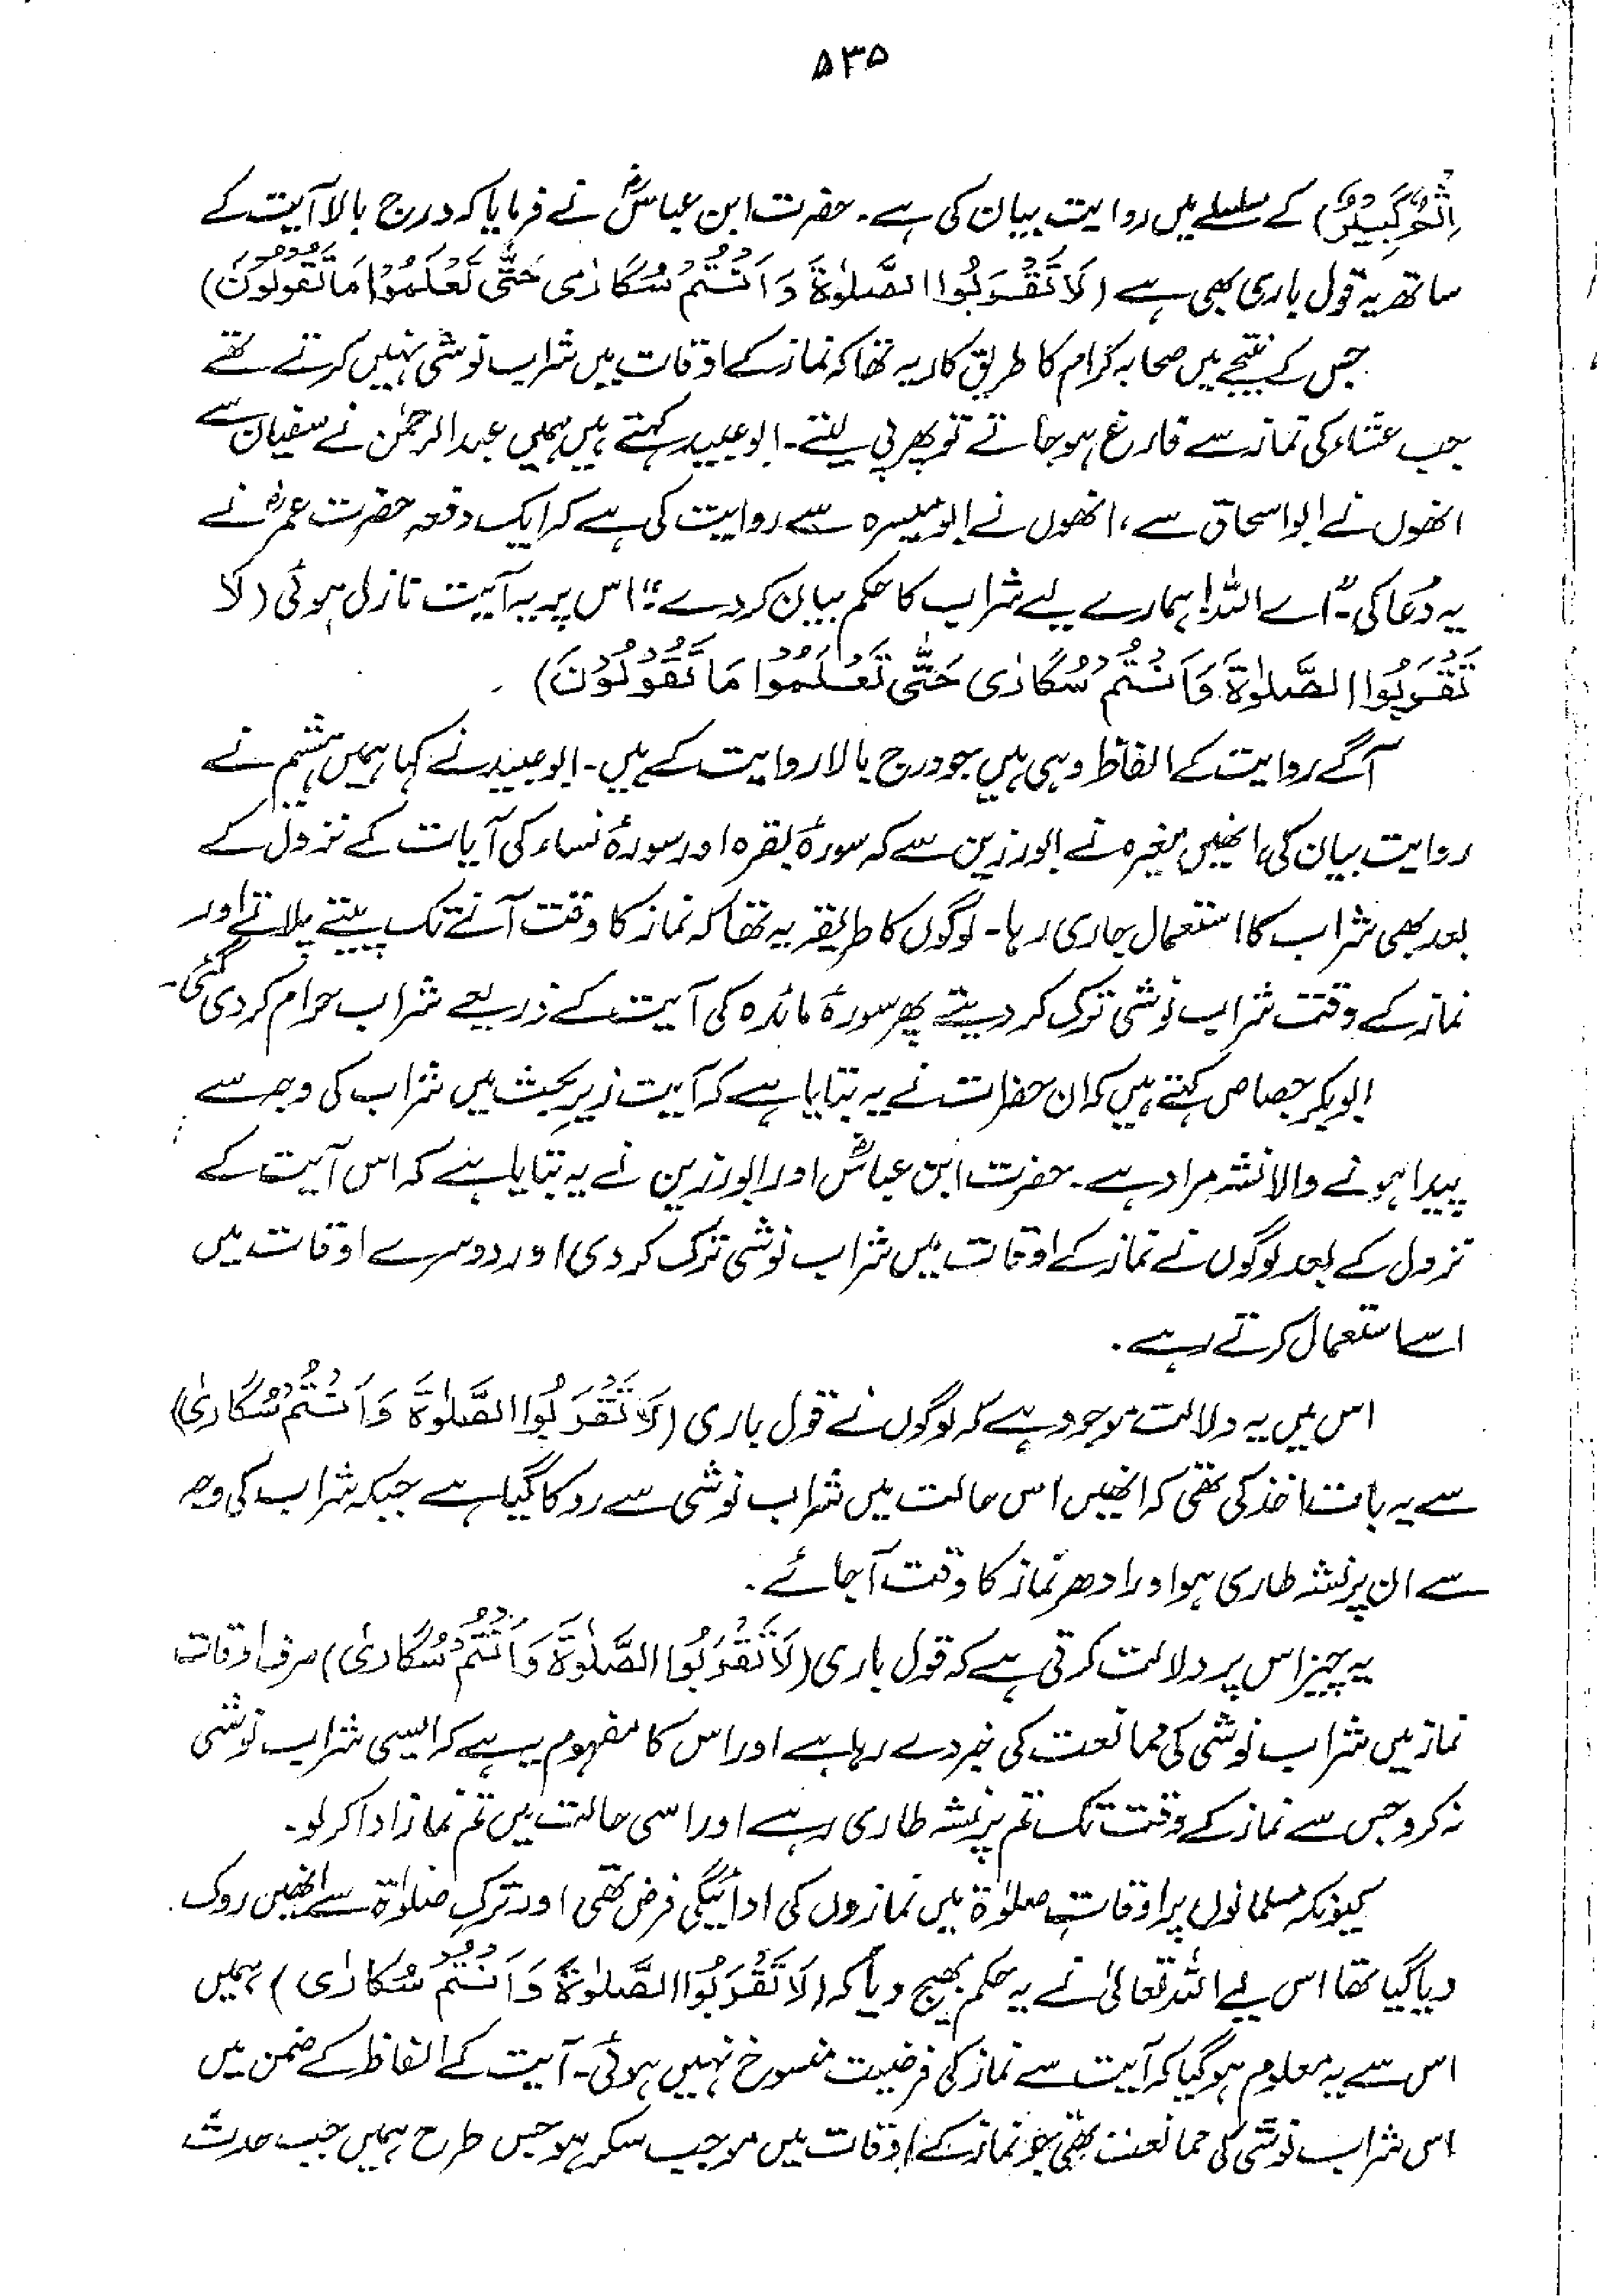 ۵۳۵
اِثْمٌ كَبِيْرٌ) کے سلسلے میں روایت بیان کی ہے۔ حضرت ابن عباسؓ نے فرمایا کہ درج بالا آیت کے
ساتھ یہ قول باری بھی ہے (لَا تَقْرَبُوا الصَّلٰوةَ وَاَنْتُمْ سُكَارٰى حَتّٰى تَعْلَمُوْا مَا تَقُوْلُوْنَ)
جس کے نتیجے میں صحابہ کرام کا طریق کار یہ تھا کہ نماز کے اوقات میں شراب نوشی نہیں کرتے تھے
جب عشاء کی نماز سے فارغ ہو جاتے تو پھر پی لیتے۔ ابوعبید کہتے ہیں ہمیں عبدالرحمٰن نے سفیان سے
انھوں نے ابواسحاق سے، انھوں نے ابومیسرہ سے روایت کی ہے کہ ایک دفعہ حضرت عمرؓ نے
یہ دُعا کی۔ "اے اللہ! ہمارے لیے شراب کا حکم بیان کر دے"؛ اس پر یہ آیت نازل ہوئی (لَا
تَقْرَبُوا الصَّلٰوةَ وَاَنْتُمْ سُكَارٰى حَتّٰى تَعْلَمُوْا مَا تَقُوْلُوْنَ)۔
آگے روایت کے الفاظ وہی ہیں جو درج بالا روایت کے ہیں۔ ابوعبید نے کہا ہمیں ہشیم نے
روایت بیان کی، انھیں مغیرہ نے ابورزین سے کہ سورۂ بقرہ اور سورۂ نساء کی آیات کے نزول کے
بعد بھی شراب کا استعمال جاری رہا۔ لوگوں کا طریقہ یہ تھا کہ نماز کا وقت آنے تک پیتے پلاتے اور
نماز کے وقت شراب نوشی ترک کر دیتے پھر سورۂ مائدہ کی آیت کے ذریعے شراب حرام کر دی گئی۔
ابوبکر جصاص کہتے ہیں کہ ان حضرات نے یہ بتایا ہے کہ آیت زیرِ بحث میں شراب کی وجہ سے
پیدا ہونے والا نشہ مراد ہے۔ حضرت ابن عباسؓ اور ابورزین نے یہ بتایا ہے کہ اس آیت کے
نزول کے بعد لوگوں نے نماز کے اوقات میں شراب نوشی ترک کر دی اور دوسرے اوقات میں
اسے استعمال کرتے رہے۔
اس میں یہ دلالت موجود ہے کہ لوگوں نے قول باری (لَا تَقْرَبُوا الصَّلٰوةَ وَاَنْتُمْ سُكَارٰى)
سے یہ بات اخذ کی تھی کہ انھیں اس حالت میں شراب نوشی سے روکا گیا ہے جبکہ شراب کی وجہ
سے ان پر نشہ طاری ہو اور ادھر نماز کا وقت آجائے۔
یہ چیز اس پر دلالت کرتی ہے کہ قول باری (لَا تَقْرَبُوا الصَّلٰوةَ وَاَنْتُمْ سُكَارٰى) صرف اوقات
نماز میں شراب نوشی کی ممانعت کی خبر دے رہا ہے اور اس کا مفہوم یہ ہے کہ ایسی شراب نوشی
نہ کرو جس سے نماز کے وقت تک تم پر نشہ طاری رہے اور اسی حالت میں تم نماز ادا کر لو۔
کیونکہ مسلمانوں پر اوقاتِ صلوٰۃ میں نمازوں کی ادائیگی فرض تھی اور ترکِ صلوٰۃ سے انھیں روک
دیا گیا تھا اس لیے اللہ تعالیٰ نے یہ حکم بھیج دیا کہ (لَا تَقْرَبُوا الصَّلٰوةَ وَاَنْتُمْ سُكَارٰى)، ہمیں
اس سے یہ معلوم ہو گیا کہ آیت سے نماز کی فرضیت منسوخ نہیں ہوئی۔ آیت کے الفاظ کے ضمن میں
اس شراب نوشی کی ممانعت تھی جو نماز کے اوقات میں موجبِ سکر ہو جس طرح ہمیں جب حدث